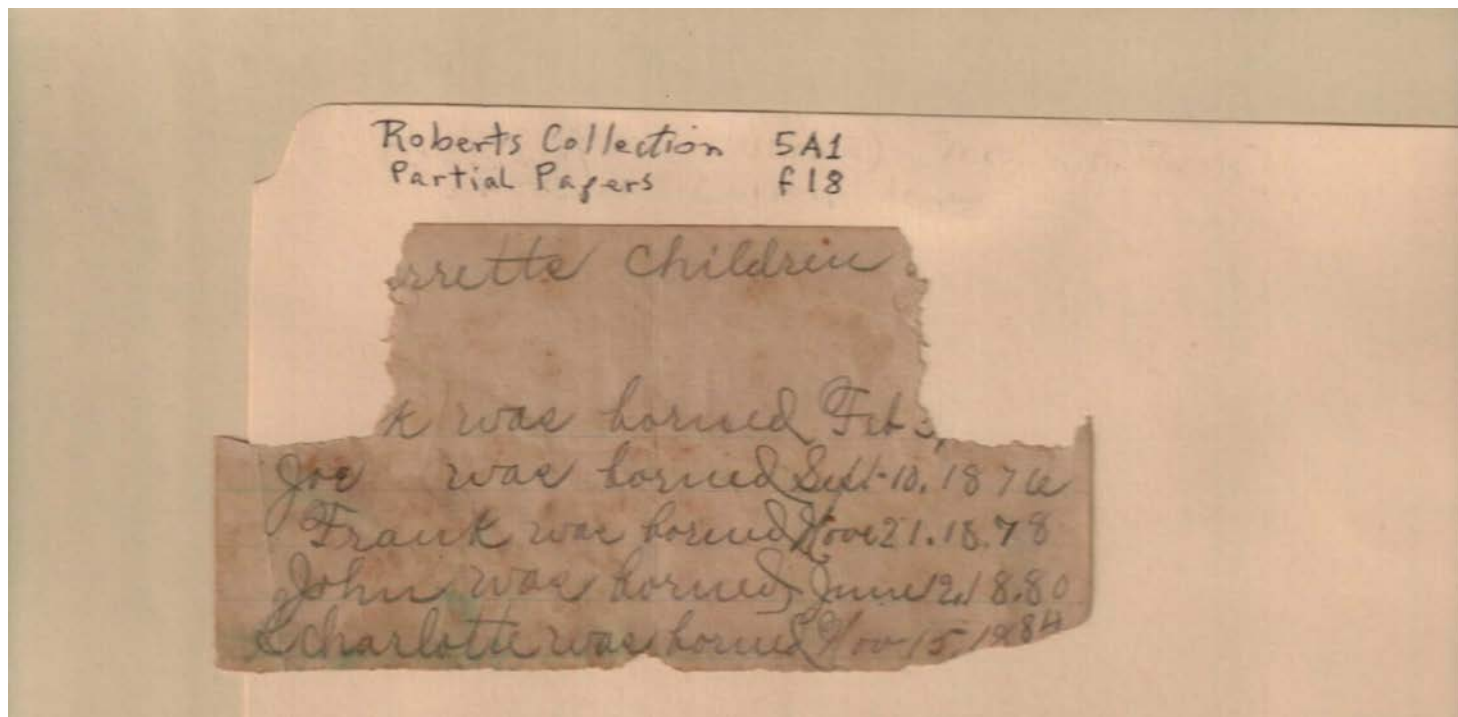 Roberts Collection 5A1
Partial Papers f18
rrette Children
k was borned Feb 3,
Joe was borned Sept-10.1876
Frank was borned Nove 21.18.78
John was borned June 12.18.80
Charlotte was borned Nov 15 1884